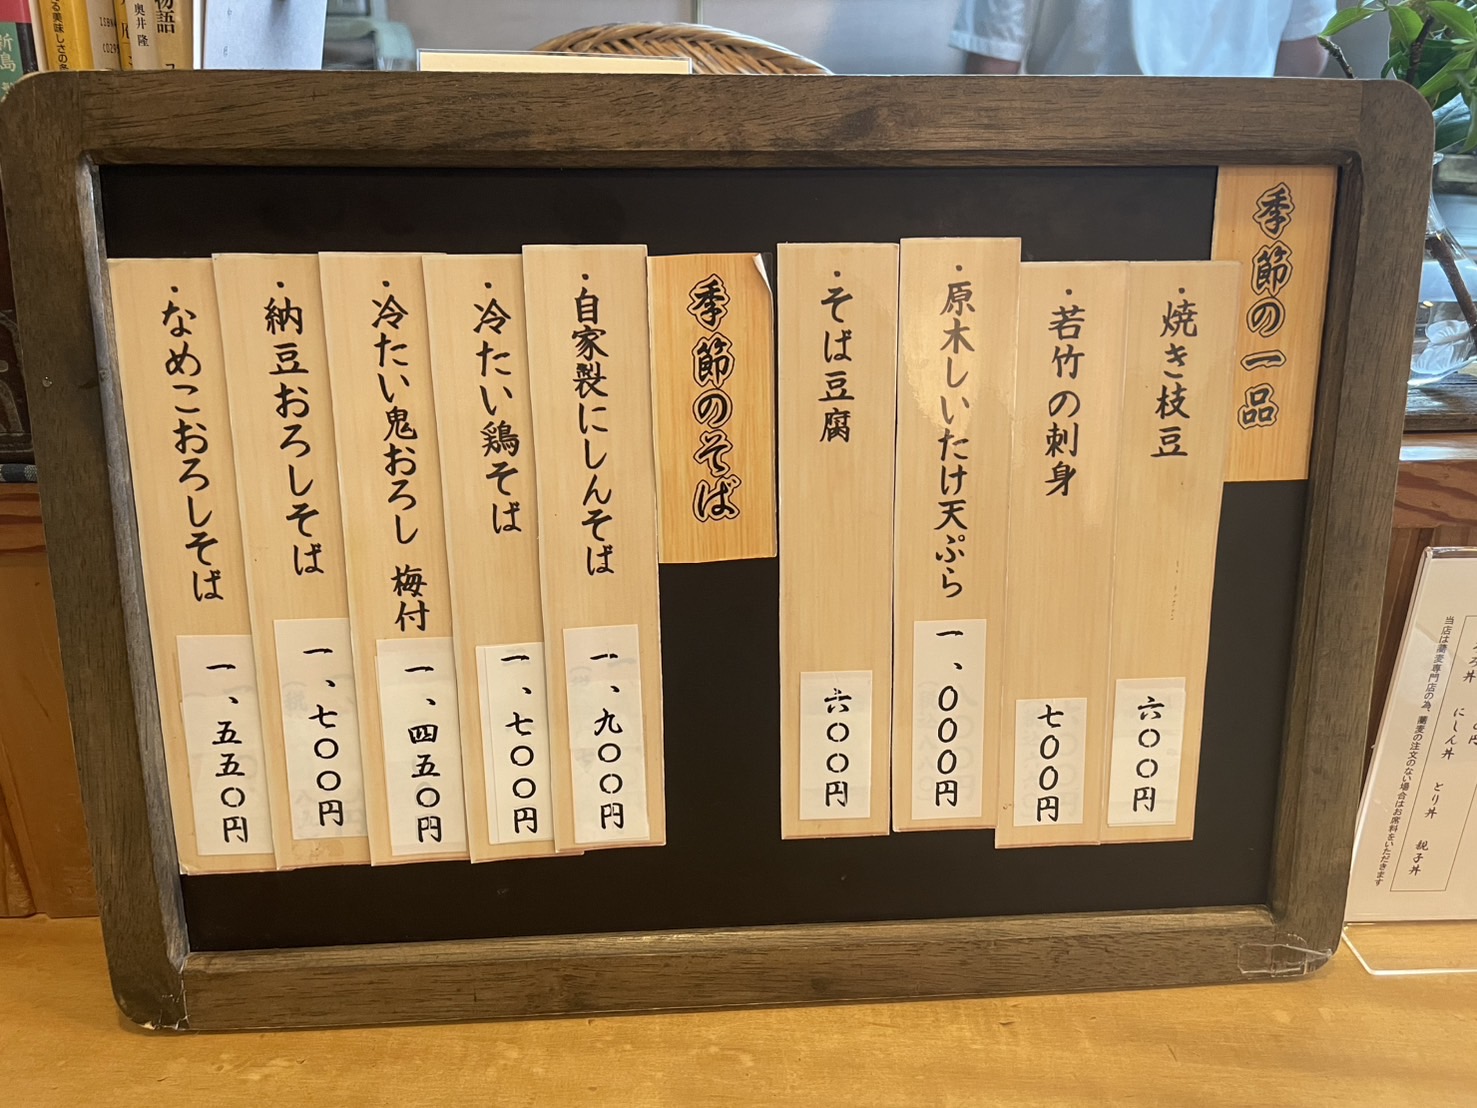 季節の一品
・焼き枝豆
六〇〇円
・若竹の刺身
七〇〇円
・原木しいたけ天ぷら
一、〇〇〇円
・そば豆腐
六〇〇円
季節のそば
・自家製にしんそば
一、九〇〇円
・冷たい鶏そば
一、七〇〇円
・冷たい鬼おろし 梅付
一、四五〇円
・納豆おろしそば
一、七〇〇円
・なめこおろしそば
一、五五〇円
にしん丼
とり丼
親子丼
当店は蕎麦専門店の為、蕎麦の注文のない場合はお席料をいただきます
物語
奥井 隆
る美味しさの
新島